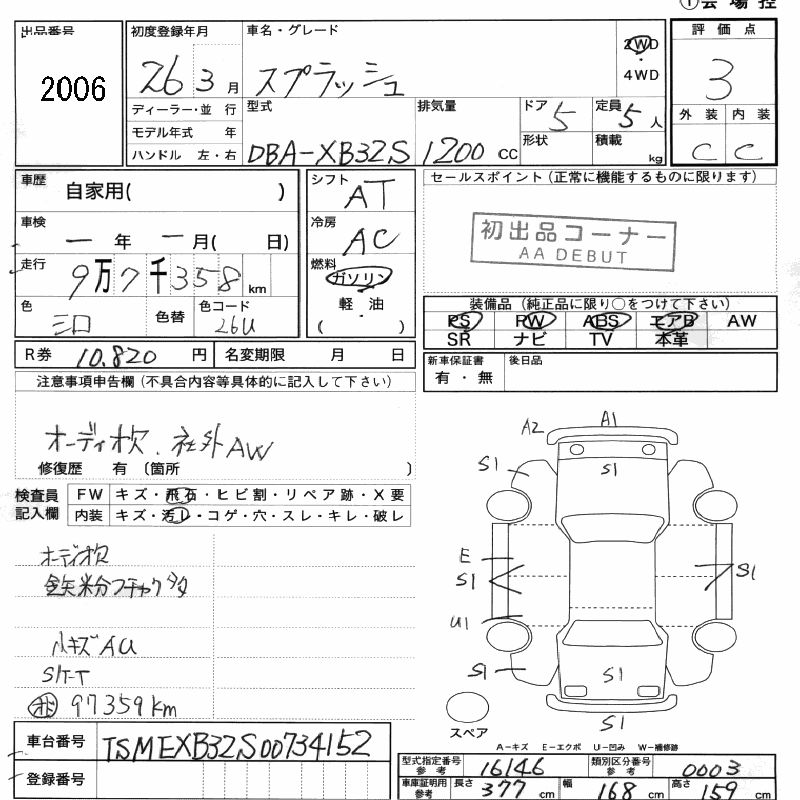 ①会場控
出品番号 2006
初度登録年月 26 3月
車名・グレード スプラッシュ
2WD・4WD
評価点 3
外装 C 内装 C
ディーラー・並行
モデル年式 年
ハンドル 左・右
型式 DBA-XB32S
排気量 1200 cc
ドア 5
形状
定員 5人
積載 kg
車歴 自家用( )
車検 ー年 ー月( 日)
走行 9万7千358 km
色 シロ 色替 色コード 26U
シフト AT
冷房 AC
燃料 ガソリン・軽・油 ( )
R券 10.820 円 名変期限 月 日
セールスポイント(正常に機能するものに限ります)
初出品コーナー
AA DEBUT
装備品(純正品に限り○をつけて下さい)
PS PW ABS エアB AW
SR ナビ TV 本革
新車保証書 有・無 後日品
注意事項申告欄(不具合内容等具体的に記入して下さい)
オーディオ欠、社外AW
修復歴 有〔箇所 〕
検査員記入欄
FW キズ・飛石・ヒビ割・リペア跡・X要
内装 キズ・汚レ・コゲ・穴・スレ・キレ・破レ
オーディオ欠
鉄粉フチャク多
ハルキズAU
S/T-T
97359km
A2 A1
S1 S1
E
S1 S1
U1
S1 S1
S1
スペア
A-キズ E-エクボ U-凹み W-補修跡
車台番号 TSMEXB32S00734152
登録番号
型式指定番号 参考 16146 類別区分番号 参考 0003
車庫証明用 参考 長さ 377 cm 幅 168 cm 高さ 159 cm